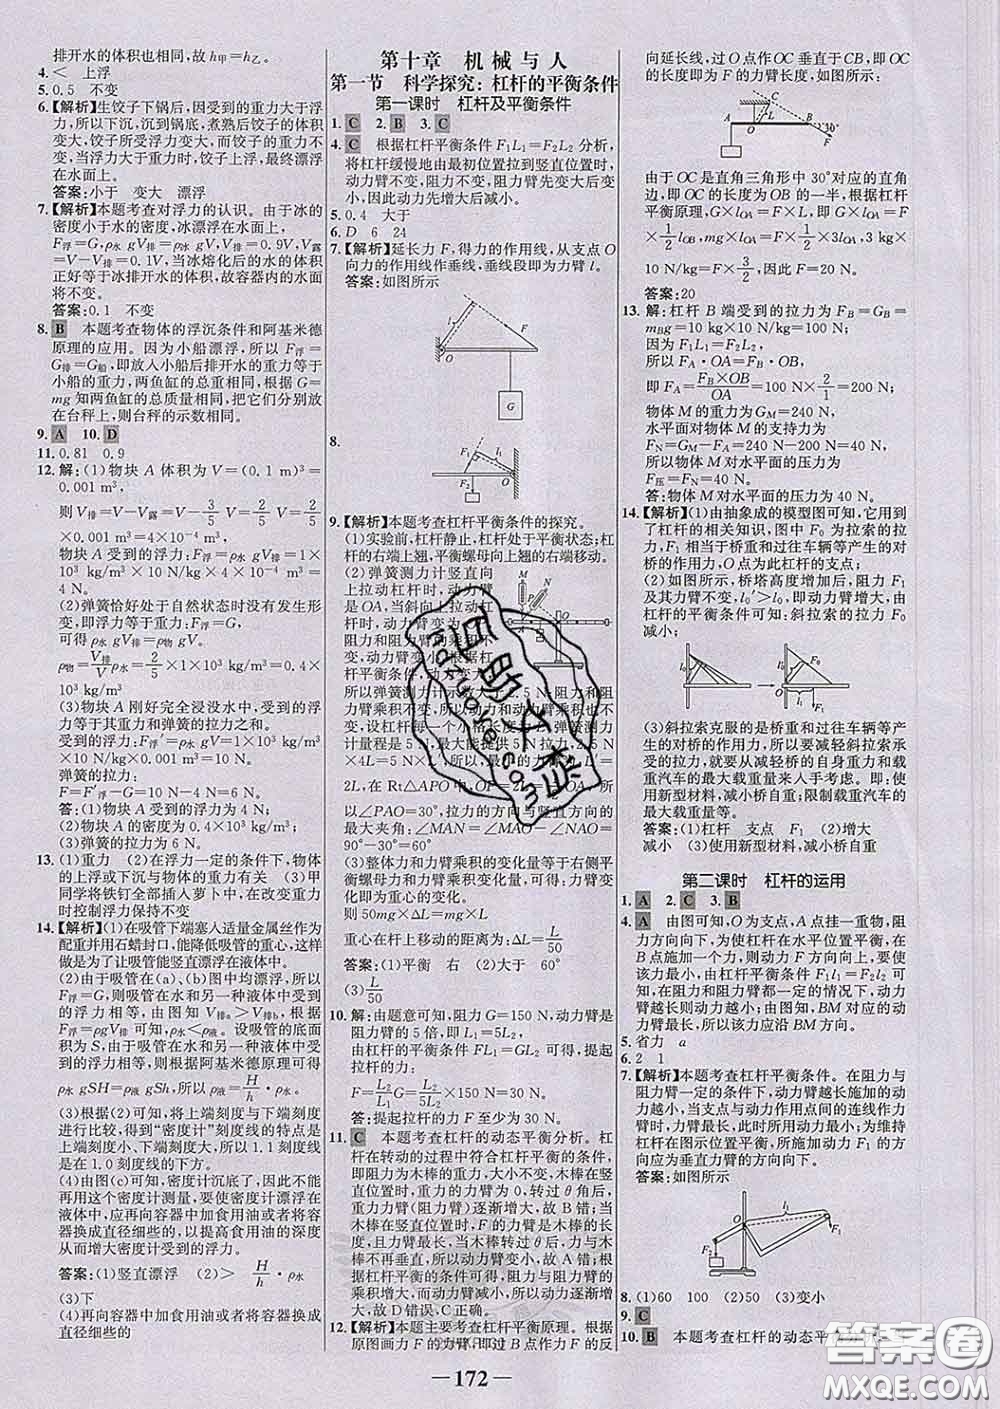 排开水的体积也相同,故 h甲=h乙。
4.< 上浮
5.0.5 不变
6.【解析】生饺子下锅后,因受到的重力大于浮
力,所以下沉,沉到锅底,煮熟后饺子的体积
变大,饺子所受浮力变大,而饺子的重力不变
,当浮力大于重力时,饺子上浮,最终漂浮
在水面上。
答案:小于 变大 漂浮
7.【解析】本题考查对浮力的认识。由于冰的
密度小于水的密度,冰漂浮在水面上,
F浮=G,ρ水 gV排=ρ冰 gV,V排=0.9V,V露
=V-V排=0.1V,当冰熔化后的水的体积
正好等于冰排开水的体积,故容器内的水面
将不变。
答案:0.1 不变
8. B 本题考查物体的浮沉条件和阿基米德
原理的应用。因为小船漂浮,所以 F浮=G船,
即放入小船后排开水的重力等于
小船的重力,两鱼缸的总重相同,根据 G=
mg 知两鱼缸的总质量相同,把它们分别放
在台秤上,则台秤的示数相同。
9. A 10. D
11.0.81 0.9
12.解:(1)物块 A 体积为 V=(0.1 m)³=
0.001 m³,
则 V排=V-V露=V-3/5 V=2/5 V=2/5×
0.001 m³=4×10⁻⁴ m³,
物块 A 受到的浮力:F浮=ρ水 gV排=1×10³
kg/m³×10 N/kg×4×10⁻⁴ m³=
4 N。
(2)弹簧恰好处于自然状态时没有发生形
变,即浮力等于重力:F浮=G,
可得 ρ水 gV排=ρ物 gV。
ρ物=V排/V ρ水=2/5×1×10³ kg/m³=0.4×
10³ kg/m³
(3)物块 A 刚好完全浸没水中,受到的浮
力等于其重力和弹簧的拉力之和。
受到的浮力:F浮′=ρ水 gV=1×10³ kg/m³
×10 N/kg×0.001 m³=10 N。
弹簧的拉力:
F=F浮′-G=10 N-4 N=6 N。
答:(1)物块 A 受到的浮力为 4 N;
(2)物块 A 的密度为 0.4×10³ kg/m³;
(3)弹簧的拉力为 6 N。
13.(1)重力 (2)在浮力一定的条件下,物体
的上浮或下沉与物体的重力有关 (3)甲
同学将铁钉全部插入萝卜中,在改变重力
时控制浮力保持不变
14.【解析】(1)在吸管下端塞入适量金属丝作为
配重并用石蜡封口,能降低吸管的重心,这样
做是为了让吸管能竖直漂浮在液体中。
(2)由于吸管在(a)、(b)图中均漂浮,所以
F浮=G,则吸管在水和另一种液体中受到
的浮力相等,由图知 V排a>V排b,根据
F浮=ρ液 gV排 可知,ρ水<ρ液。设吸管的底面
积为 S,由于吸管在水和另一种液体中受到
的浮力相等,所以根据阿基米德原理可得
ρ水 gSH=ρ液 gSh,所以 ρ液=H/h·ρ水。
(3)根据(2)可知,将上端刻度与下端刻度
进行比较,得到“密度计”刻度线的特点是
上端刻度小、下端刻度大,所以 1.1 刻度线
是在 1.0 刻度线的下方。
(4)由图(c)可知,密度计沉底了,因此不能
测量密度,要想让密度计漂浮在
液体中,应再向容器中加食用油或者将容器
换成直径细些的,以提高食用油的深度
从而增大密度计受到的浮力。
答案:(1)竖直漂浮 (2)> H/h·ρ水
(3)下
(4)再向容器中加食用油或者将容器换成
直径细些的
第十章 机械与人
第一节 科学探究:杠杆的平衡条件
第一课时 杠杆及平衡条件
1. C 2. B 3. C
4. C 根据杠杆平衡条件 F₁L₁=F₂L₂ 分析,
将杠杆缓慢地由最初位置拉到竖直位置时,
动力臂不变,阻力不变,阻力臂先变大后变
小,因此动力先增大后减小。
5.0.4 大于
6.D 6 24
7.【解析】延长力 F,得力的作用线,从支点 O
向力的作用线作垂线,垂线段即为力臂 l。
答案:如图所示
l F O G
8.
l₁ F₁ O F₂
9.【解析】本题考查杠杆平衡条件的探究。
(1)实验前,杠杆静止,处于平衡状态;杠
杆的右端上翘,平衡螺母向上翘的右端移动。
(2)弹簧测力计竖直向
上拉动杠杆时,动力臂
是 OA,当斜向上拉动杠
杆时,动力臂变为
阻力和阻力臂不变,动力臂变小,根据杠
杆平衡条件,动力变大
所以弹簧测力计示数大于 2.5 N,阻力和阻
力臂乘积不变,所以动力和动力臂乘积也不
变,设杠杆每一个小格长度为 L,弹簧测力
计量程是 5 N,最大能提供 5 N 拉力,2.5 N
×4L=5 N×L′,所以,最小的力臂 L′=
2L,在 Rt△APO 中,OP=2L=1/2OA,所
以∠PAO=30°,拉力的方向与竖直方向的
最大夹角:∠MAN=∠MAO-∠NAO=
90°-30°=60°
(3)整体力和力臂乘积的变化量等于右侧平
衡螺母力和力臂乘积的变化量,
则 50mg×ΔL=mg×L,
重心在杆上移动的距离为:ΔL=L/50
答案:(1)平衡 右 (2)大于 60°
(3)L/50
10.解:由题意可知,阻力 G=150 N,动力臂是
阻力臂的 5 倍,即 L₁=5L₂,
由杠杆的平衡条件 FL₁=GL₂ 可得,提起
拉杆的力:
F=L₂/L₁ G=L₂/5L₂×150 N=30 N。
答:提起拉杆的力 F 至少为 30 N。
11. C 本题考查杠杆的动态平衡分析。杠
杆在转动的过程中符合杠杆平衡的条件,
即阻力为木棒的重力,大小不变,木棒在竖
直位置时,重力的力臂为 0,转过 θ 角后,
重力力臂(阻力臂)逐渐增大,故 B 错;当木
棒在竖直位置时,F 的力臂是木棒的长度,
此时力臂最长,当木棒转过 θ 角时,木棒
不再竖直,所以动力臂变小,故 A 错;根据
杠杆平衡的条件可得,阻力与阻力臂的乘
积增大,而动力臂减小,所以动力逐渐增
大,故 D 错误,C 正确。
12.【解析】本题主要考查杠杆平衡原理。根据
原图画力 F 的力臂,即从支点作力 F 的反
向延长线,过 O 点作 OC 垂直于 CB,则 OC
的长度即为 F 的力臂长度,如图。
C A O L B 30° F
由于 OC 是直角三角形中 30°对应的直角
边,即 OC 的长度为 OB 的一半,根据杠杆
平衡原理,G×lOA=F×L,即 G×lOA=F×
1/2 lOB,mg×lOA=F×1/2×3lOA,3 kg×
10 N/kg=F×3/2,因此 F=20 N。
答案:20
13.解:杠杆 B 端受到的拉力为 FB=GB=
mBg=10 kg×10 N/kg=100 N;
因为 F₁L₁=F₂L₂,
所以 FA·OA=FB×OB,
即 FA=FB×OB/OA=100 N×2/1=200 N,
物体 M 的重力为 GM=240 N,
水平面对物体 M 的支持力为
FN=GM-FA=240 N-200 N=40 N。
所以物体 M 对水平面的压力为
F压=FN=40 N。
答:物体 M 对水平面的压力为 40 N。
14.【解析】(1)由抽象成的模型图可知,它用
到了杠杆的相关知识,图中 F₀ 为拉索的拉
力,F₁ 相当于桥重和过往车辆等产生的对
桥的作用力,O 点为此杠杆的支点;
(2)如图所示,桥塔高度增加后,阻力 F₁
及其力臂不变,l₀′>l₀,即动力臂增大,由
杠杆的平衡条件可知:斜拉索的拉力 F₀
减小;
l₀ l₀′ F₀ F₁
(3)斜拉索克服的是桥重和过往车辆等产
生的对桥的作用力,所以要减轻斜拉索承
受的拉力,就应当从减轻桥的自身重力和
载重汽车的最大载重量来入手考虑。即:使
用新型材料,减小桥自重;限制载重汽车的
最大载重量等。
答案:(1)杠杆 支点 F₁ (2)增大
减小 (3)使用新型材料,减小桥自重
第二课时 杠杆的运用
1. A 2. C 3. B
4. A 由图可知,O 为支点,A 点挂一重物,阻
力方向向下,为使杠杆在水平位置平衡,在
B 点施加一个力,则力的方向应向上,要使
该力最小,由杠杆平衡条件 F₁l₁=F₂l₂ 可
知,在阻力和阻力臂都一定的情况下,动力臂
越长则动力越小,由图可知 BM 对应的动
力臂最长,所以该力应沿 BM 方向。
5.省力 a
6.2 1
7.【解析】本题考查杠杆平衡条件。在阻力与
阻力臂一定的条件下,动力臂越长施加的动
力越小,当支点与动力作用点间的连线作力
臂时,力臂最长,此时动力最小;为维持
杠杆在图示位置平衡,动力 F₁ 的方
向应为垂直力臂方向向下。
答案:如图所示
A O l₁ F₁ F₂
8.(1)60 100 (2)50 (3)变小
9. C
10. B 本题考查杠杆的动态平
— 172 —
答案圈
MXQE.COM